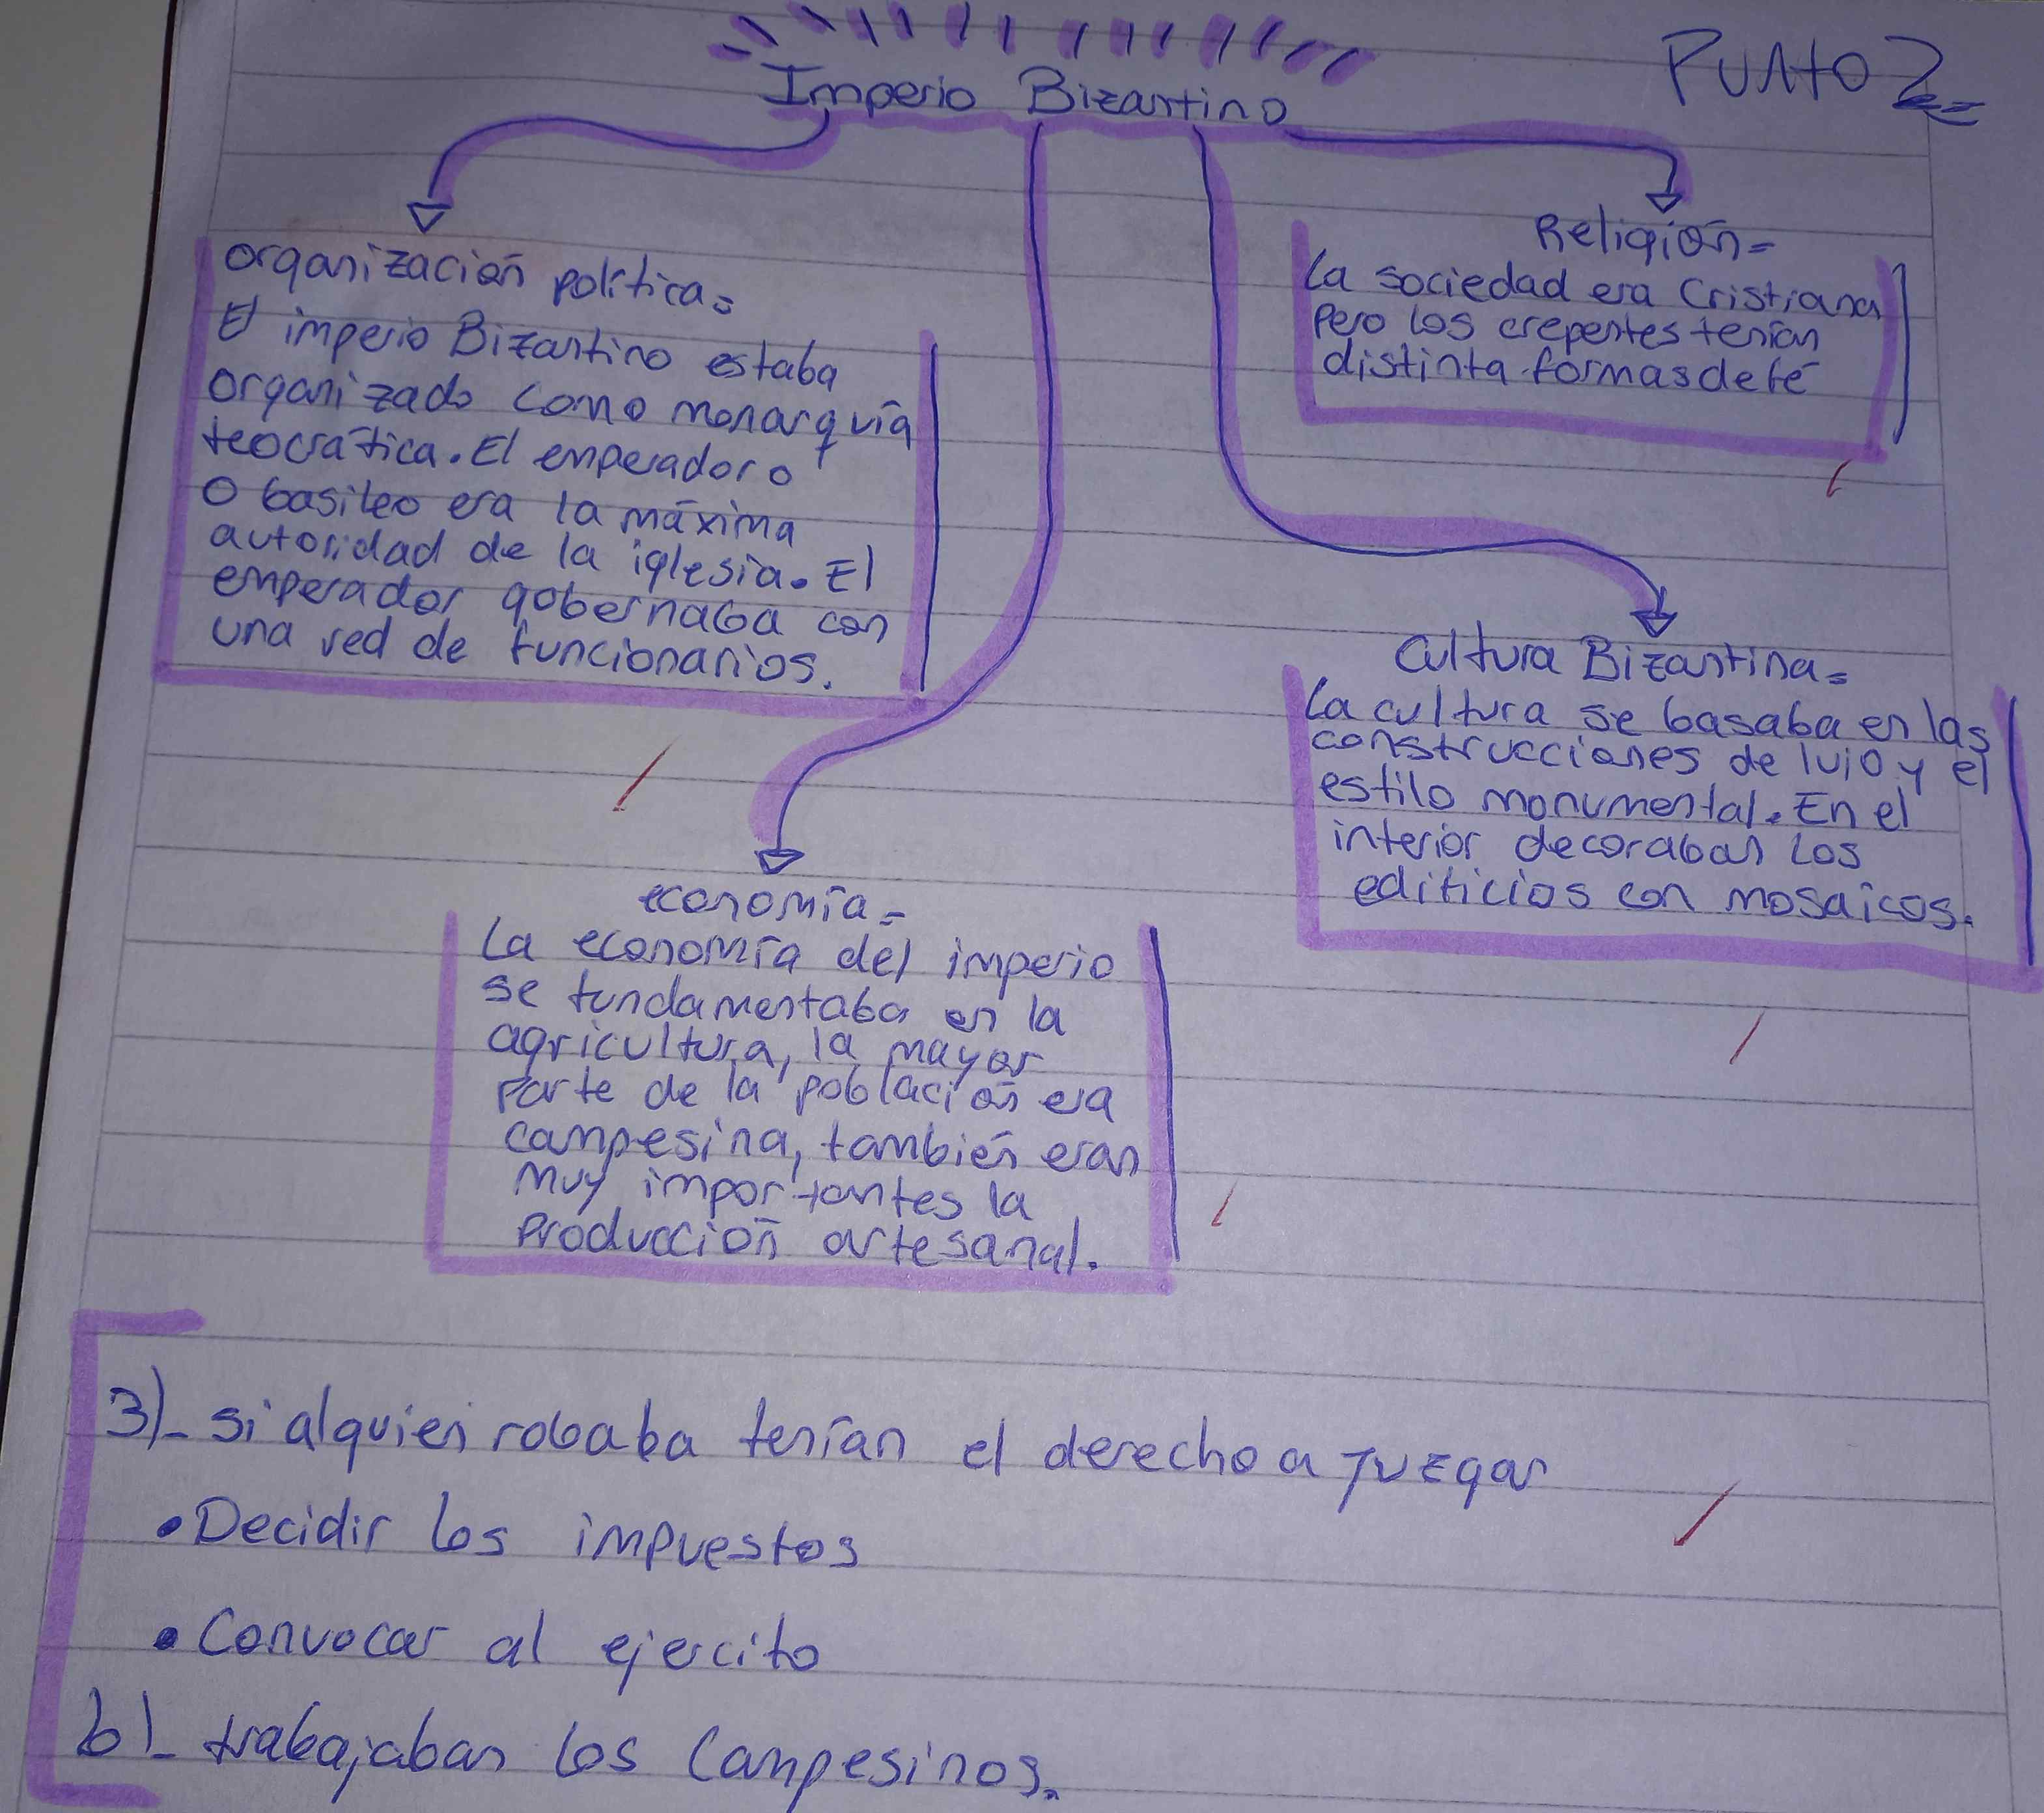 Imperio Bizantino
Punto 2=
organización política=
El imperio Bizantino estaba
organizado como monarquía
teocrática. El emperador o
o basileo era la máxima
autoridad de la iglesia. El
emperador gobernaba con
una red de funcionarios.
Religión=
La sociedad era Cristiana
Pero los crepentes tenían
distinta formas de fé
Cultura Bizantina=
La cultura se basaba en las
construcciones de lujo y el
estilo monumental. En el
interior decoraban los
edificios con mosaicos.
economía=
La economía del imperio
se fundamentaba en la
agricultura, la mayor
parte de la población era
campesina, también eran
muy importantes la
Producción artesanal.
3)- si alguien robaba tenían el derecho a Juzgar
• Decidir los impuestos
• Convocar al ejercito
b)- trabajaban los campesinos.